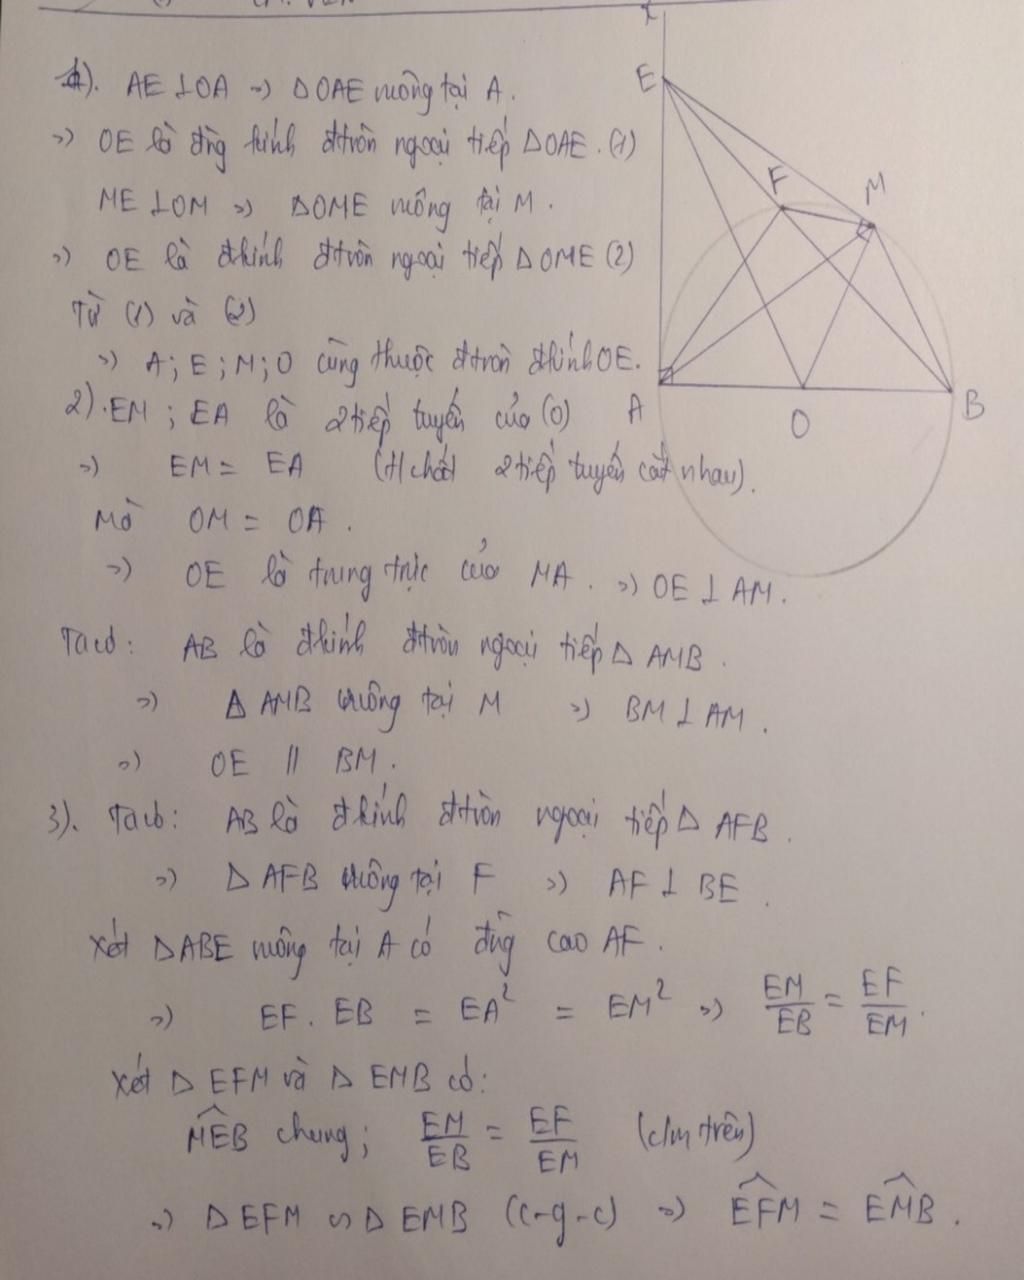 1). AE ⊥ OA => △OAE vuông tại A.
=> OE là đg kính đtròn ngoại tiếp △OAE. (1)
ME ⊥ OM => △OME vuông tại M.
=> OE là đkính đtròn ngoại tiếp △OME (2)
Từ (1) và (2)
=> A; E; M; O cùng thuộc đtròn đkính OE.
2). EM; EA là 2 tiếp tuyến của (O)
=> EM = EA (t/chất 2 tiếp tuyến cắt nhau).
Mà OM = OA.
=> OE là trung trực của MA. => OE ⊥ AM.
Ta có: AB là đkính đtròn ngoại tiếp △ AMB.
=> △ AMB vuông tại M => BM ⊥ AM.
=> OE // BM.
3). Ta có: AB là đkính đtròn ngoại tiếp △ AFB.
=> △ AFB vuông tại F => AF ⊥ BE.
Xét △ABE vuông tại A có đg cao AF.
=> EF. EB = EA² = EM² => EM/EB = EF/EM.
Xét △ EFM và △ EMB có:
MEB chung; EM/EB = EF/EM (c/m trên)
=> △ EFM ∽ △ EMB (c-g-c) => EFM = EMB.
x
E
F
M
A
O
B